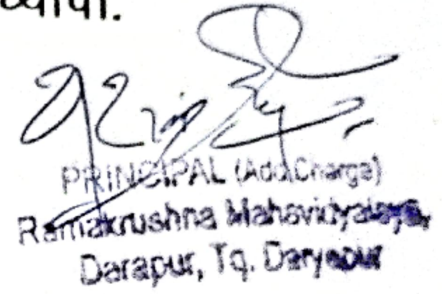 PRINCIPAL (Add.Charge)
Ramakrushna Mahavidyalaya,
Darapur, Tq. Daryapur